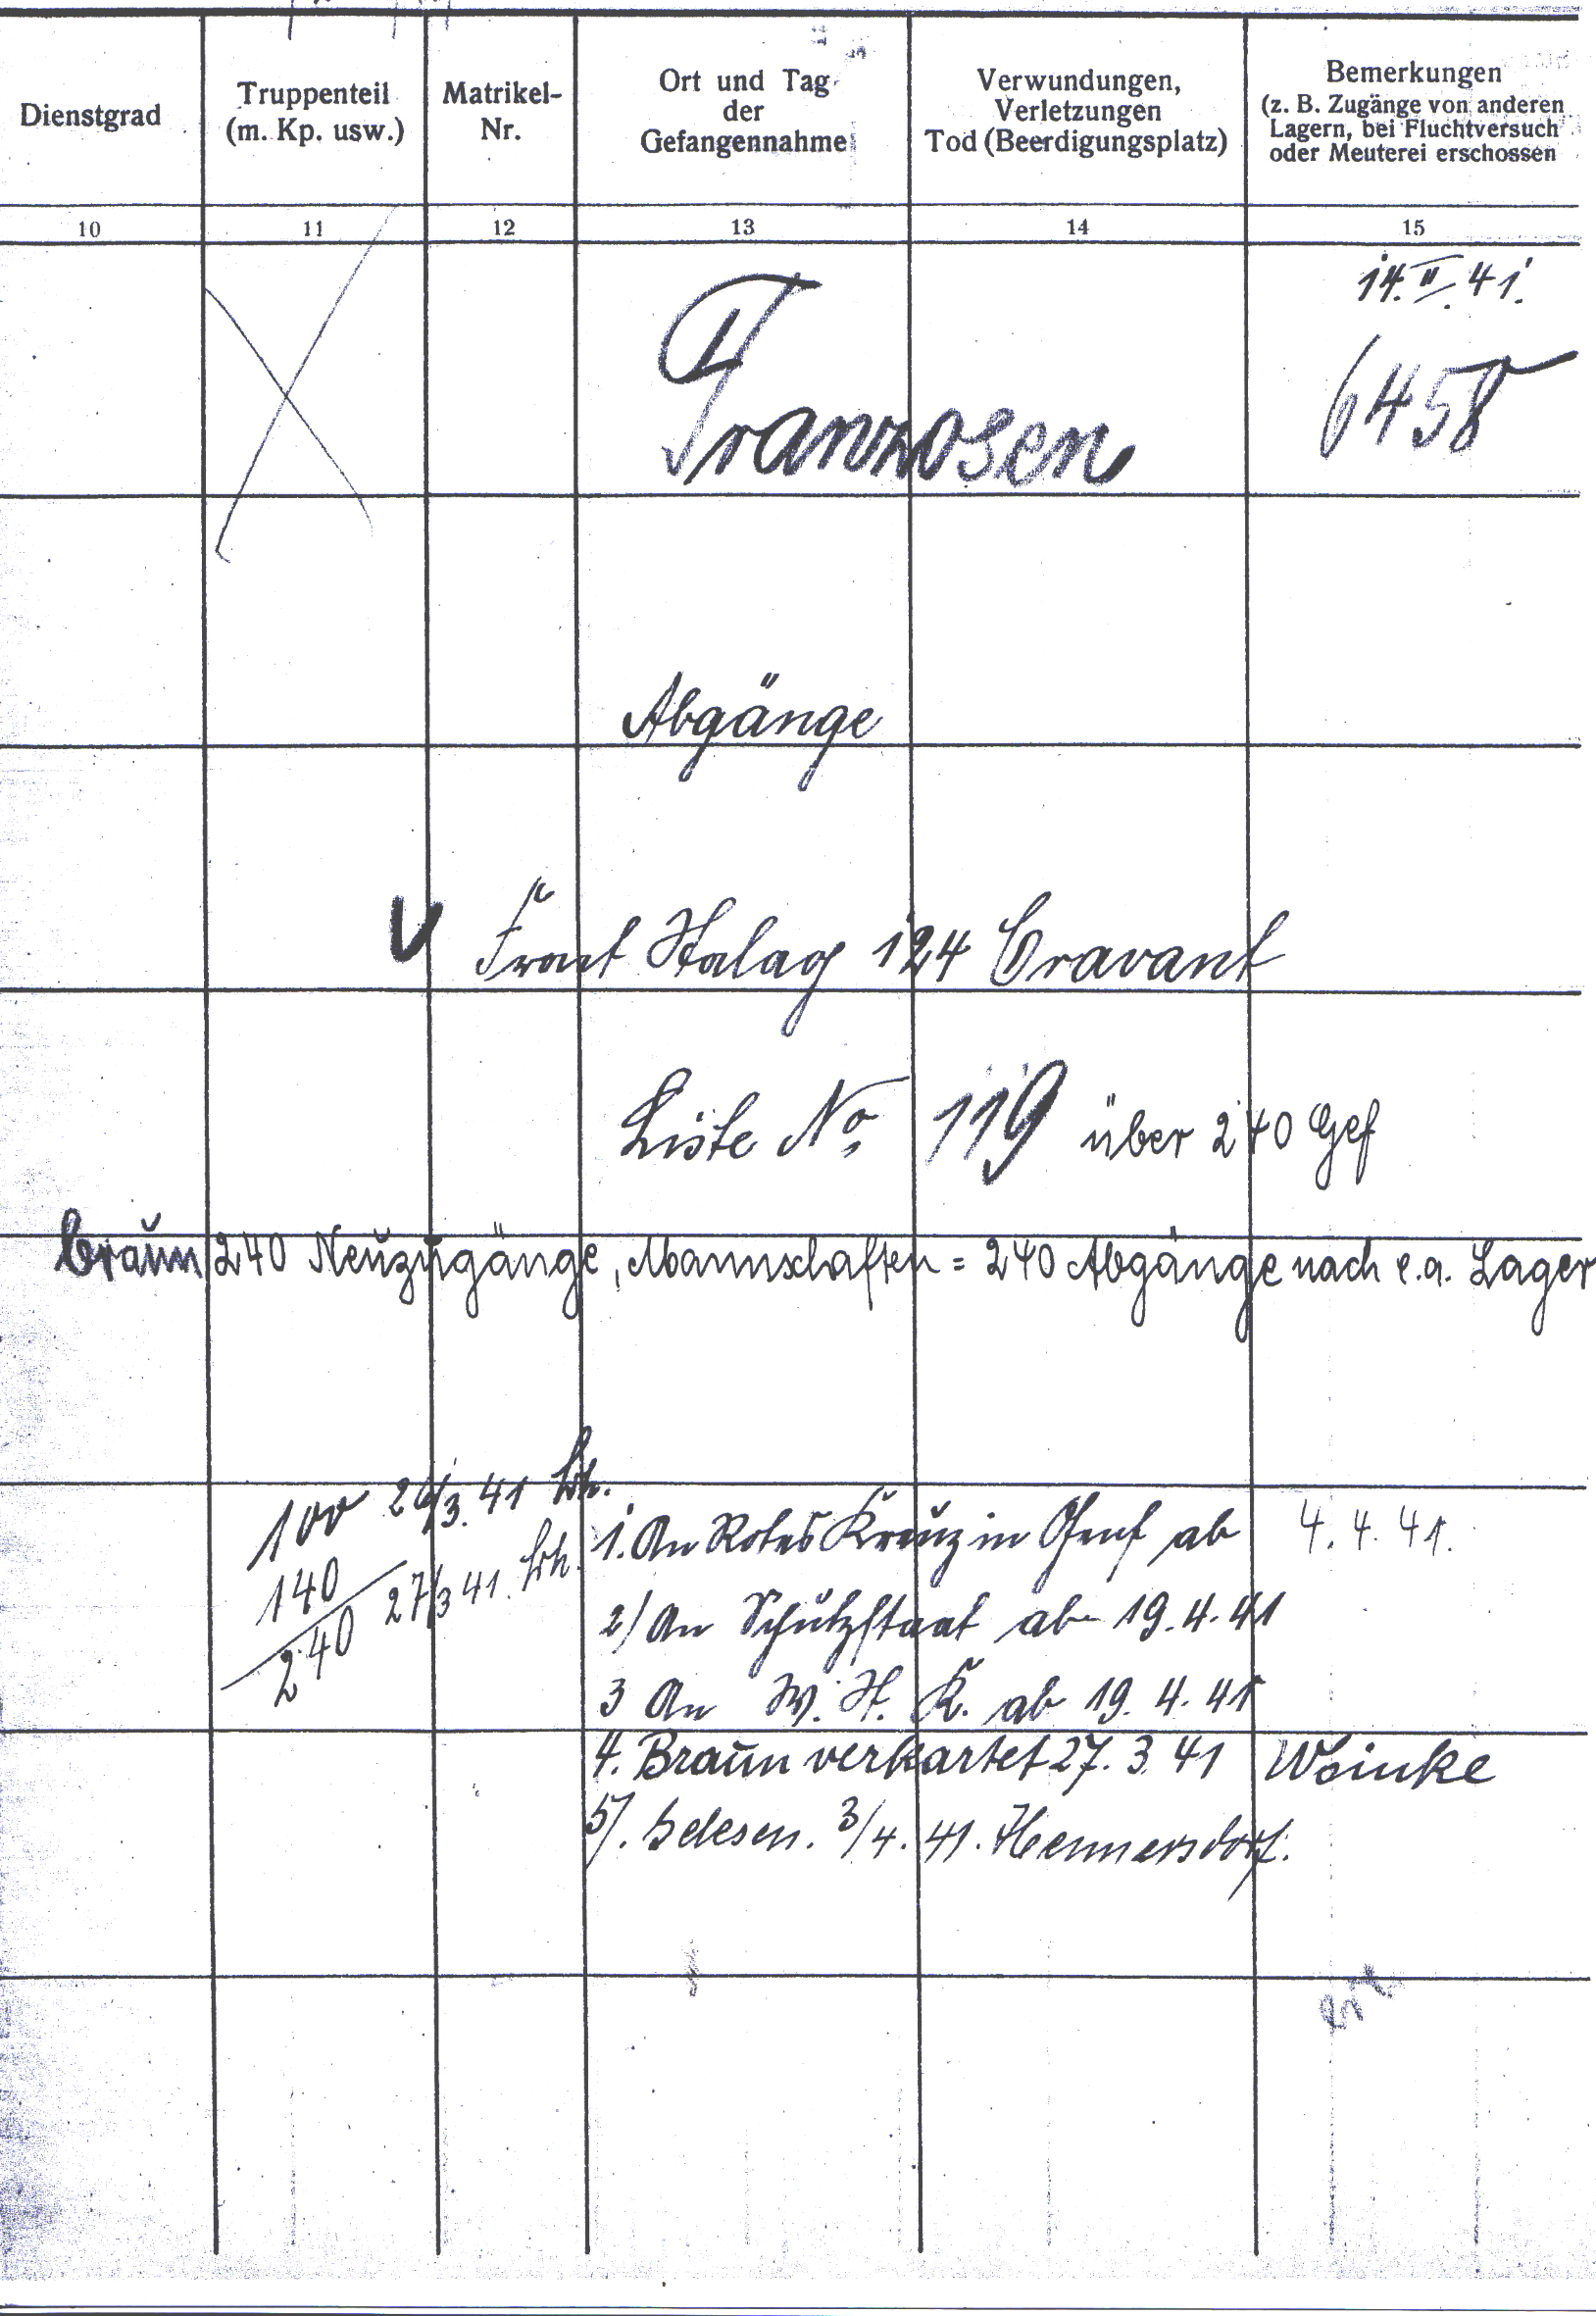 Dienstgrad
Truppenteil
(m. Kp. usw.)
Matrikel-
Nr.
Ort und Tag
der
Gefangennahme
Verwundungen,
Verletzungen
Tod (Beerdigungsplatz)
Bemerkungen
(z. B. Zugänge von anderen
Lagern, bei Fluchtversuch
oder Meuterei erschossen
10 11 12 13 14 15
14. II. 41.
6458
Franzosen
Abgänge
Front Stalag 124 Cravant
Liste No 119 über 240 Gef
braun 240 Neuzugänge, Mannschaften = 240 Abgänge nach e.a. Lager
100 26/3. 41
140 27/3 41.
240
1. An Rotes Kreuz in Genf ab 4. 4. 41.
2) An Schutzstaat ab 19. 4. 41
3 An W. St. K. ab 19. 4. 41
4. Braun verkartet 27. 3. 41 Woinke
5). Gelesen. 3/4. 41. Hennersdorf.